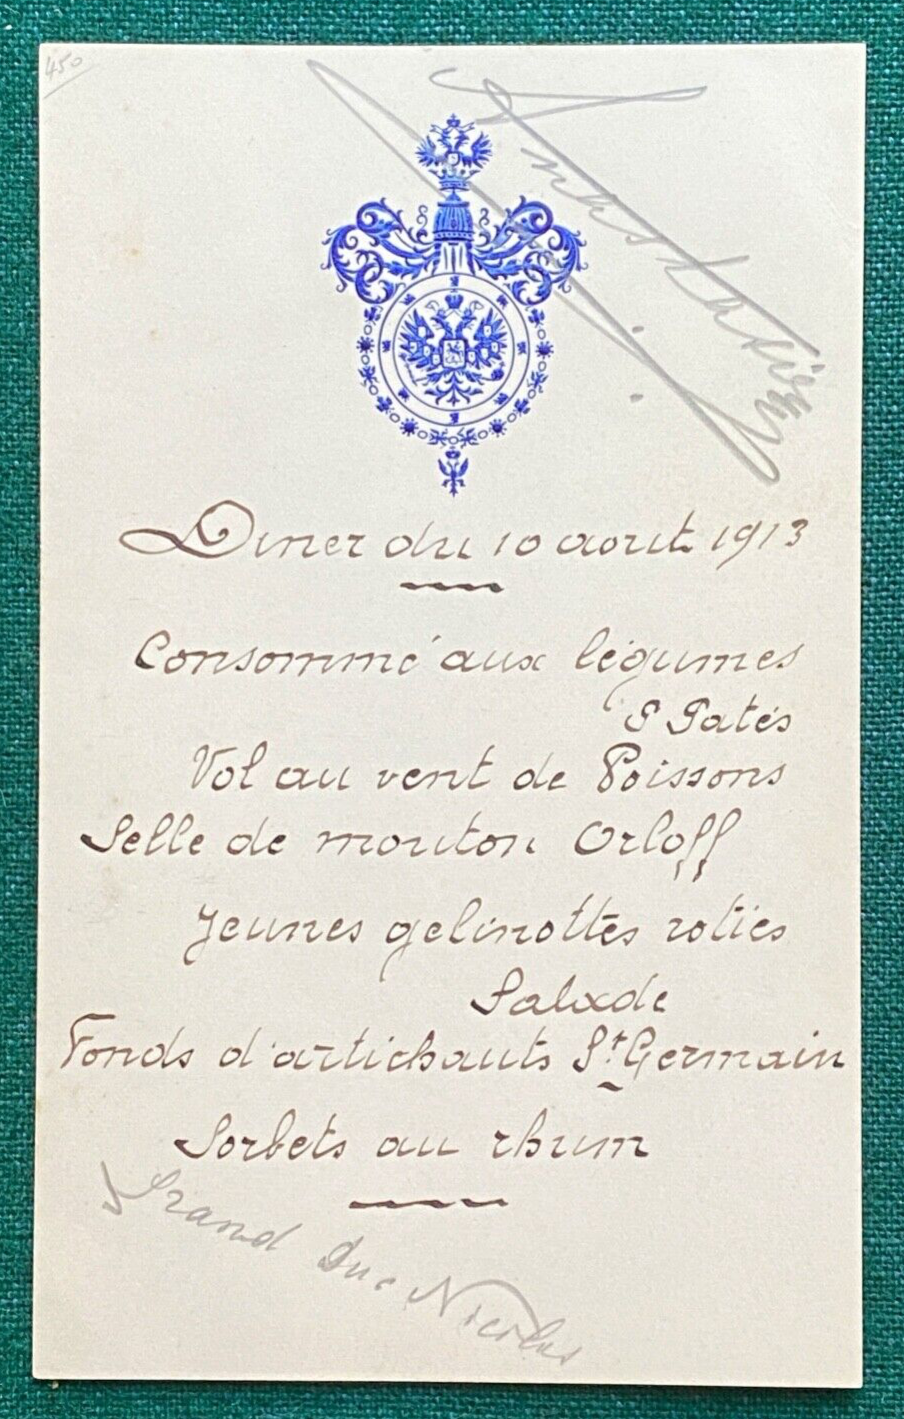 450
Anastasie
Diner du 10 aout 1913
Consommé aux légumes
P Patés
Vol au vent de Poissons
Selle de mouton Orloff
Jeunes gelinottes roties
Salade
Fonds d'artichauts St Germain
Sorbets au rhum
Grand Duc Nicolas